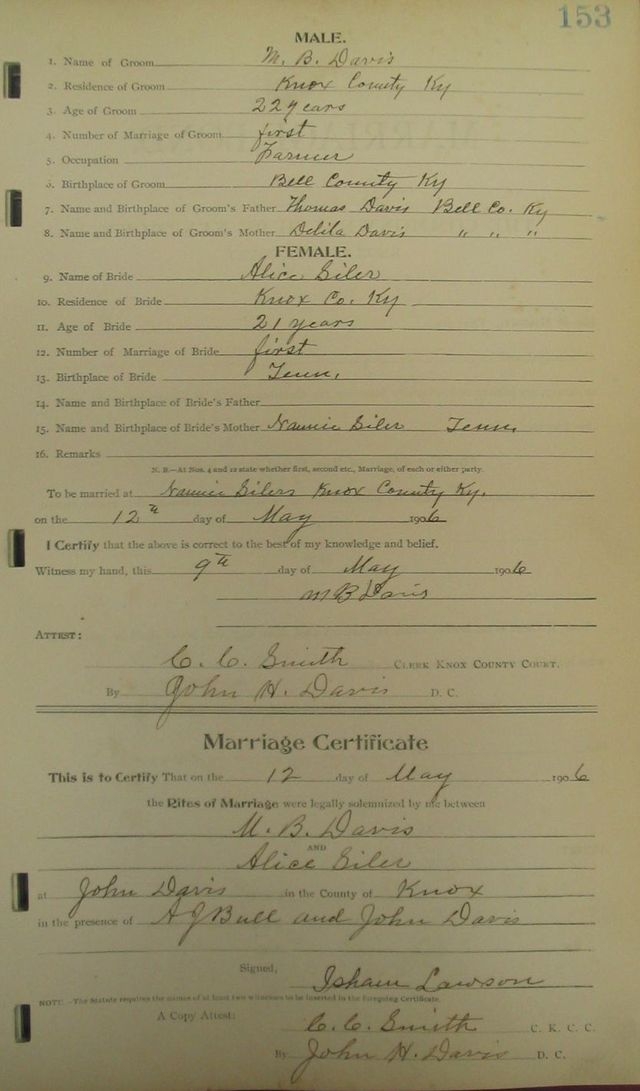 153
MALE.
1. Name of Groom M. B. Davis
2. Residence of Groom Knox County Ky
3. Age of Groom 22 years
4. Number of Marriage of Groom first
5. Occupation Farmer
6. Birthplace of Groom Bell County Ky
7. Name and Birthplace of Groom's Father Thomas Davis Bell Co. Ky
8. Name and Birthplace of Groom's Mother Delila Davis " " "
FEMALE.
9. Name of Bride Alice Siler
10. Residence of Bride Knox Co. Ky
11. Age of Bride 21 years
12. Number of Marriage of Bride first
13. Birthplace of Bride Tenn.
14. Name and Birthplace of Bride's Father
15. Name and Birthplace of Bride's Mother Nannie Siler Tenn.
16. Remarks
N. B.—At Nos. 4 and 12 state whether first, second etc., Marriage, of each or either party.
To be married at Nannie Silers Knox County Ky.
on the 12th day of May 1906
I Certify that the above is correct to the best of my knowledge and belief.
Witness my hand, this 9th day of May 1906
M B Davis
ATTEST:
C. C. Smith CLERK KNOX COUNTY COURT.
By John H. Davis D. C.
Marriage Certificate
This is to Certify That on the 12 day of May 1906
the Rites of Marriage were legally solemnized by me between
M. B. Davis
AND
Alice Siler
at John Davis in the County of Knox
in the presence of A J Bull and John Davis
Signed, Isham Lawson
NOTE.—The Statute requires the names of at least two witnesses to be inserted in the foregoing Certificate.
A Copy Attest: C. C. Smith C. K. C. C.
By John H. Davis D. C.